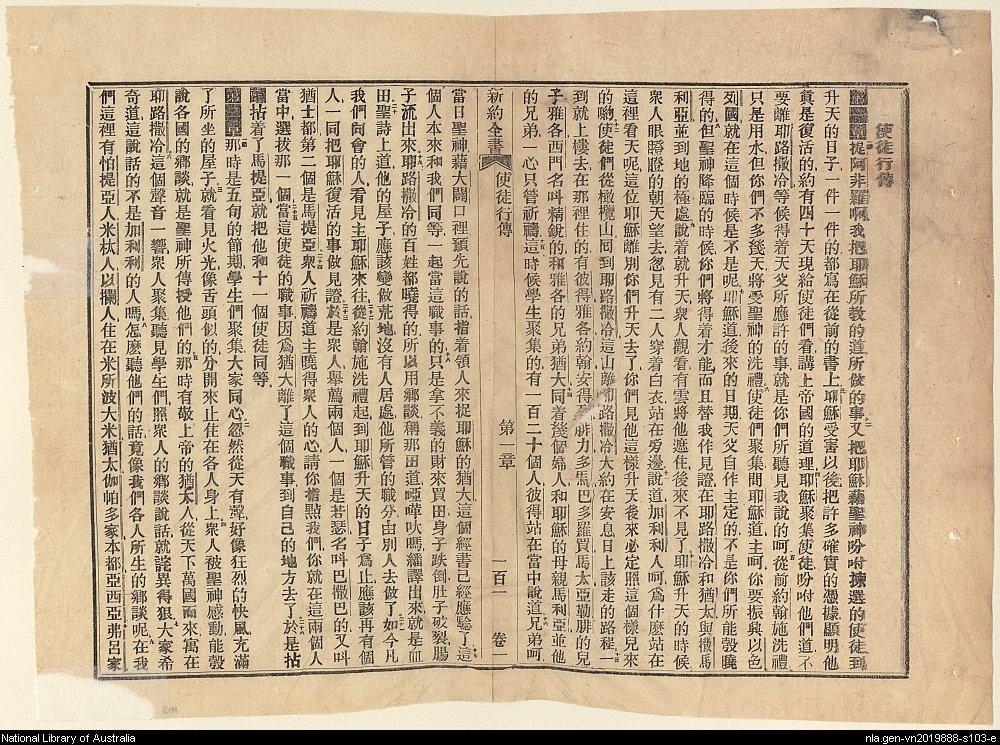 使徒行傳
第一章提阿非羅啊我把耶穌所教的道所做的事又把耶穌藉聖神吩咐揀選的使徒到
升天的日子一件一件的都寫在從前的書上耶穌受害以後把許多確實的憑據顯明他
眞是復活的約有四十天現給使徒們看講上帝國的道理耶穌聚集使徒吩咐他們道不
要離耶路撒冷等候得着天父所應許的事就是你們所聽見我說的呵從前約翰施洗禮
只是用水但你們不多幾天將受聖神的洗禮使徒們聚集間耶穌道主呵你要振興以色
列國就在這個時候是不是呢耶穌道後來的日期天父自作主定的不是你們所能彀曉
得的但聖神降臨的時候你們將得着才能而且替我作見證在耶路撒冷和猶太與撒馬
利亞並到地的極處說着就升天衆人觀看有雲將他遮住後來不見了耶穌升天的時候
衆人眼睜睜的朝天望去忽見有二人穿着白衣站在旁邊說道加利利人呵爲什麼站在
這裡看天呢這位耶穌離別你們升天去了你們見他這樣升天後來必定照這個樣兒來
的喲使徒們從橄欖山回到耶路撒冷這山離耶路撒冷大約在安息日上該走的路程一
到就上樓去在那裡住的有彼得雅各約翰安得 腓力多馬巴多羅買馬太亞勒腓的兒
子雅各西門名叫精銳的和雅各的兄弟猶大同着幾個婦人和耶穌的母親馬利亞並他
的兄弟一心只管祈禱這時候學生聚集的有一百二十個人彼得站在當中說道兄弟呵
新約全書 使徒行傳 第一章 一百一 卷一
當日聖神藉大闢口裡預先說的話指着領人來捉耶穌的猶大這個經書已經應驗了這
個人本來和我們同等一起當這職事的只是拿不義的財來買田身子跌倒肚子破裂腸
子流出來耶路撒冷的百姓都曉得的所以用鄉談稱那田道啞嘩吠嗎繙譯出來就是血
田聖詩上道他的屋子應該變做荒地沒有人居處他所管的職分由別人去做了如今凡
我們聚會的人看見主耶穌來往從約翰施洗禮起到耶穌升天的日子爲止應該再有個
人一同把耶穌復活的事做見證於是衆人舉薦兩個人一個是若瑟名叫巴撒巴的又叫
猶士都第二個是馬提亞衆人祈禱道主曉得衆人的心請你指點我們你就在這兩個人
當中選拔那一個當這使徒的職事因爲猶大離了這個職事到自己的地方去了於是拈
鬮拈着了馬提亞就把他和十一個使徒同等
第二章那時是五旬的節期學生們聚集大家同心忽然從天有聲好像狂烈的快風充滿
了所坐的屋子就看見火光像舌頭似的分開來止住在各人身上衆人被聖神感動能彀
說各國的鄉談就是聖神所傳授他們的那時有敬上帝的猶太人從天下萬國而來寓在
耶路撒冷這個聲音一響衆人聚集聽見學生們照衆人的鄉談說話就詫異得狠大家希
奇道這說話的不是加利利的人嗎怎麼聽他們的話竟像我們各人所生的鄉談呢在我
們這裡有怕提亞人米杕人以攔人住在米所波大米猶太伽帕多家本都亞西亞弗呂家
National Library of Australia
nla.gen-vn2019888-s103-e